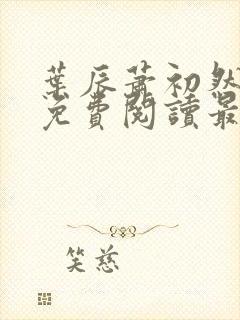 葉辰蕭初然
免費閱讀最
笑慈